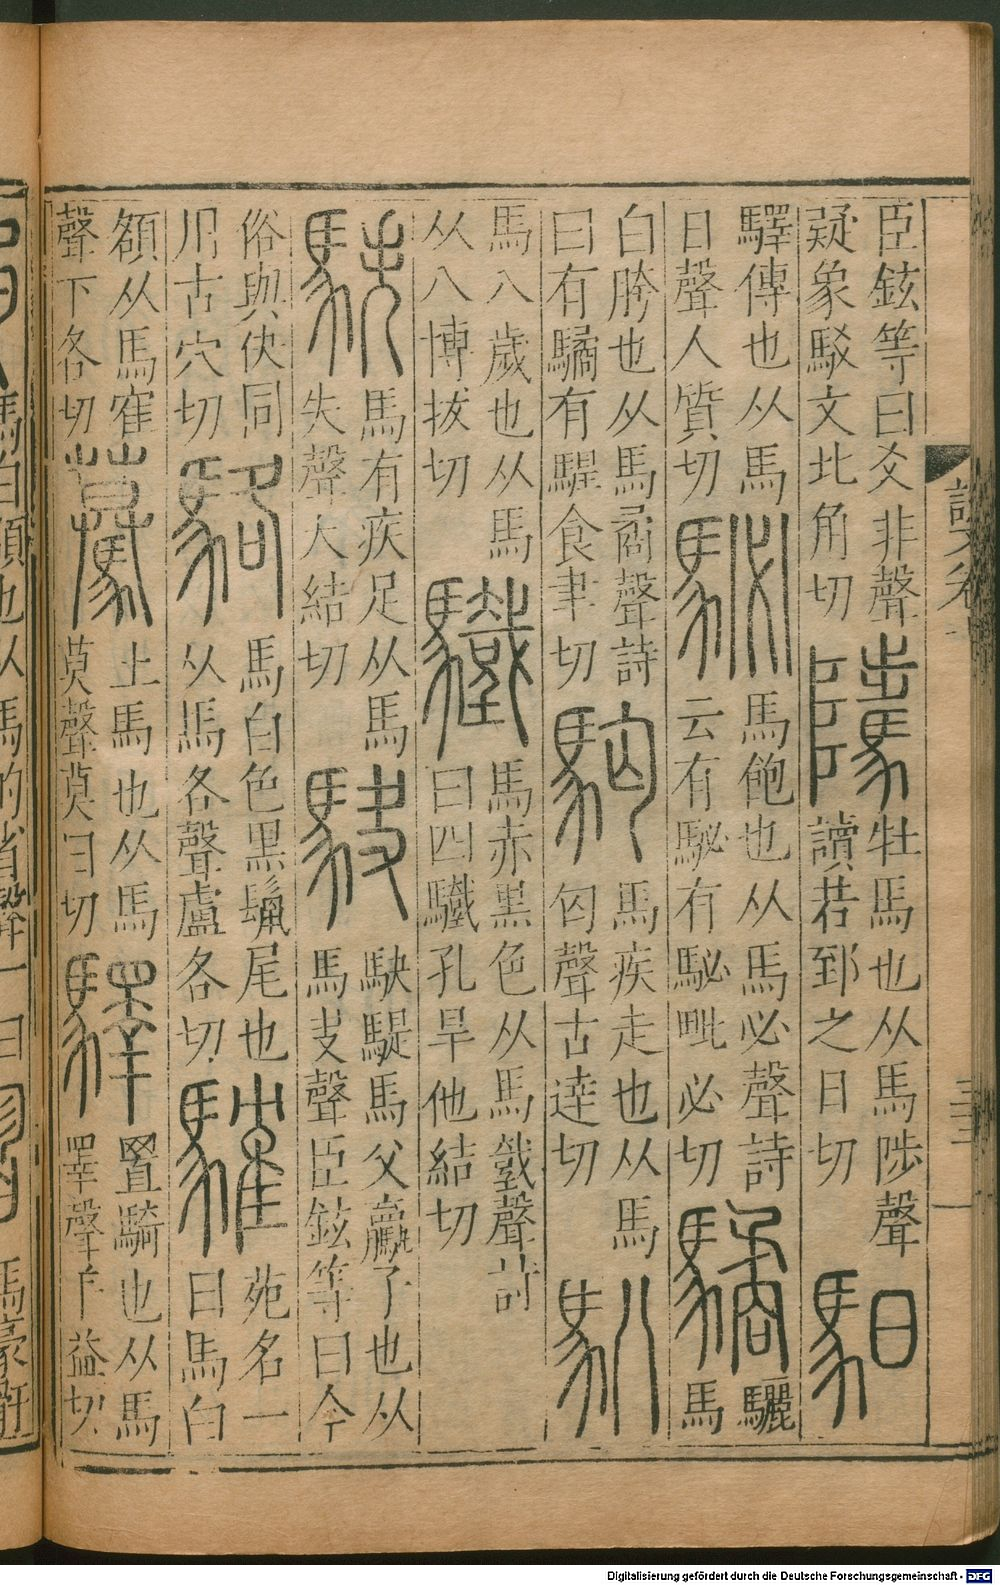 說文卷十
臣鉉等曰爻非聲疑象駁文北角切騭牡馬也从馬陟聲讀若郅之日切馹
驛傳也从馬日聲人質切駜馬飽也从馬必聲詩云有駜有駜毗必切驈驪馬
白胯也从馬矞聲詩曰有驈有騜食聿切𩣡馬疾走也从馬匃聲古達切馬八
馬八歲也从馬从八博拔切驖馬赤黑色从馬𢧜聲詩曰四驖孔阜他結切
䭿馬有疾足从馬失聲大結切駃駃騠馬父驘子也从馬夬聲臣鉉等曰今
俗與快同用古穴切駱馬白色黑鬣尾也从馬各聲盧各切䮤苑名一曰馬白
額从馬隺聲下各切驀上馬也从馬莫聲莫白切驛置騎也从馬睪聲羊益切
馬白頟也从馬的省聲一曰
Digitalisierung gefördert durch die Deutsche Forschungsgemeinschaft - DFG